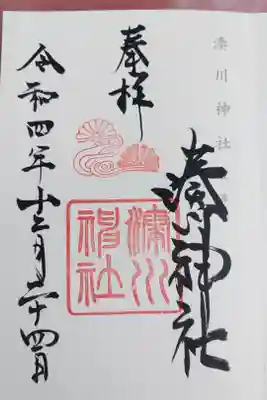 湊川神社
奉拝
湊川神社
湊川神社
令和四年十二月二十四日